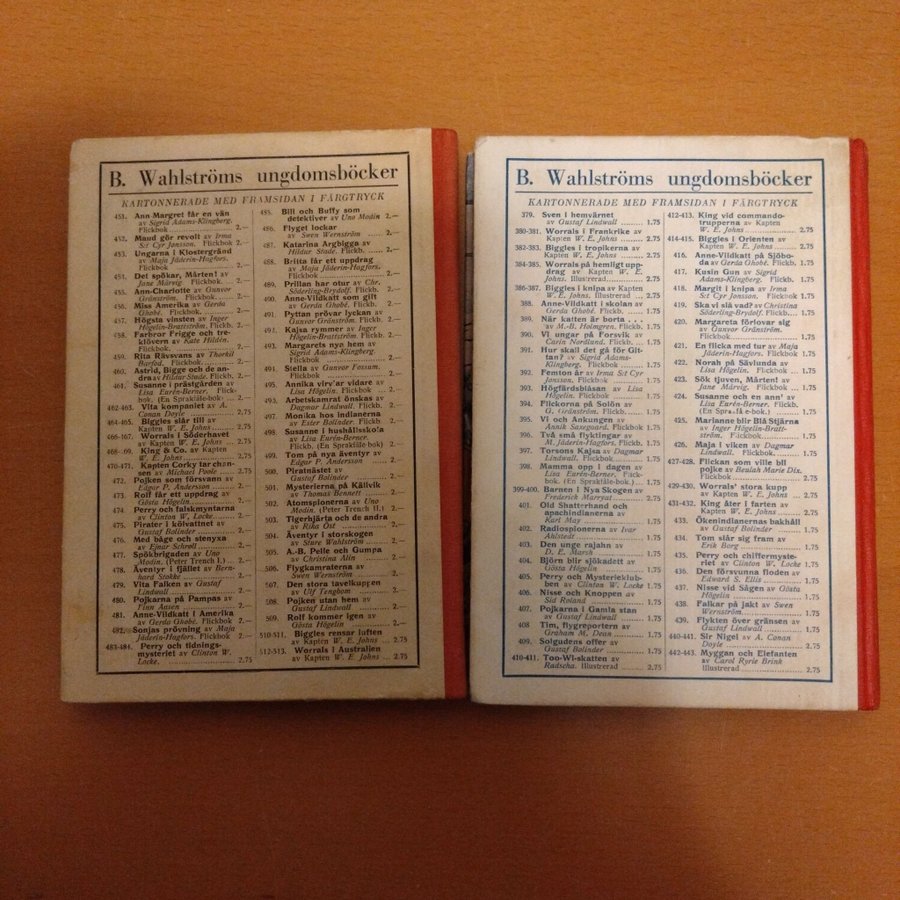 B. Wahlströms ungdomsböcker
KARTONNERADE MED FRAMSIDAN I FÄRGTRYCK
451. Ann Margret får en vän
av Sigrid Adams-Klingberg.
Flickbok 2.—
452. Maud gör revolt av Irma
S:t Cyr Jansson. Flickbok 2.—
453. Ungarna i Klostergränd
av Maja Jäderin-Hagfors.
Flickbok 2.—
454. Det spökar, Mårten! av
Jane Mårvig. Flickbok 2.—
455. Ann-Charlotte av Gunvor
Gränström. Flickbok 2.—
456. Miss Amerika av Gerda
Ghobé. Flickbok 2.—
457. Högsta vinsten av Inger
Högelin-Brattström. Flickb. 2.—
458. Farbror Frigge och tre-
klövern av Kate Hilden.
Flickbok. 2.—
459. Rita Rävsvans av Thorkil
Barfod. Flickbok. 2.—
460. Astrid, Bigge och de an-
dra av Hildur Stade. Flickb. 2.—
461. Susanne i prästgården av
Lisa Eurén-Berner. Flick-
bok. (En Språkfåle-bok) 2.—
462-463. Vita kompaniet av A.
Conan Doyle 2.75
464-465. Biggles slår till av
Kapten W. E. Johns 2.75
466-167. Worrals i Söderhavet
av Kapten W. E. Johns 2.75
468-69. King & Co. av Kapten
W. E. Johns 2.75
470-471. Kapten Corky tar chan-
sen av Michael Poole 2.75
472. Pojken som försvann av
Edgar P. Andersson 2.—
473. Rolf får ett uppdrag av
Gösta Högelin 2.—
474. Perry och falskmyntarna
av Clinton W. Locke 2.—
475. Pirater i kölvattnet av
Gustaf Bolinder 2.—
476. Med båge och stenyxa
av Ejnar Schroll 2.—
477. Spökbrigaden av Uno
Modin. (Peter Trench I.) 2.—
478. Äventyr i fjället av Bern-
hard Stokke 2.—
479. Vita Falken av Gustaf
Lindwall 2.—
480. Pojkarna på Pampas av
Finn Aasen 2.—
481. Anne-Vildkatt i Amerika
av Gerda Ghobé. Flickbok 2.—
482. Sonjas prövning av Maja
Jäderin-Hagfors. Flickbok 2.—
483-484. Perry och tidnings-
mysteriet av Clinton W.
Locke. 2.75
485. Bill och Buffy som
detektiver av Uno Modin 2.—
486. Flyget lockar
av Swen Wernström 2.—
487. Katarina Argbigga av
Hildur Stade. Flickb. 2.—
488. Britta får ett uppdrag
av Maja Jäderin-Hagfors.
Flickbok 2.—
489. Prillan har otur av Chr.
Söderling-Brydolf. Flickb. 2.—
490. Anne-Vildkatt som gift
av Gerda Ghobé. Flickb. 2.—
491. Pyttan prövar lyckan av
Gunvor Gränström. Flickb. 2.—
492. Kajsa rymmer av Inger
Högelin-Brattström. Flickb. 2.—
493. Margarets nya hem av
Sigrid Adams-Klingberg.
Flickbok 2.—
494. Stella av Gunvor Fossum.
Flickbok 2.—
495. Annika virv'ar vidare av
Lisa Högelin. Flickbok 2.—
496. Arbetskamrat önskas av
Dagmar Lindwall. Flickb. 2.—
497. Monika hos indianerna
av Ester Bolinder Flickb. 2.—
498. Susanne i hushållsskola
av Lisa Eurén-Berner.
Flickb. (En Språkfåle bok) 2.—
499. Tom på nya äventyr av
Edgar P. Andersson 2.—
500. Piratnästet av
Gustaf Bolinder 2.—
501. Mysterierna på Källvik
av Thomas Bennett 2.—
502. Atomspionerna av Uno
Modin. (Peter Trench II.) 2.—
503. Tigerhjärta och de andra
av Rika Ost 2.—
504. Äventyr i storskogen
av Sture Wahlström 2.—
505. A.-B. Pelle och Gumpa
av Christina Alin 2.—
506. Flygkamraterna av
Swen Wernström 2.—
507. Den stora tavelkuppen
av Ulf Tengbom 2.—
508. Pojken utan hem av
Gustaf Lindwall 2.—
509. Rolf kommer igen av
Gösta Högelin 2.—
510-511. Biggles rensar luften
av Kapten W. E. Johns 2.75
512-513. Worrals i Australien
av Kapten W. E. Johns 2.75
B. Wahlströms ungdomsböcker
KARTONNERADE MED FRAMSIDAN I FÄRGTRYCK
379. Sven i hemvärnet
av Gustaf Lindwall 1.75
380-381. Worrals i Frankrike av
Kapten W. E. Johns 2.75
382-383. Biggles i tropikerna av
Kapten W. E. Johns 2.75
384-385. Worrals på hemligt upp-
drag av Kapten W. E.
Johns. Illustrerad 2.75
386-387. Biggles i knipa av Kapten
W. E. Johns. Illustrerad 2.75
388. Anne-Vildkatt i skolan av
Gerda Ghobé. Flickb. 1.75
389. När katten är borta
av M.-B. Holmgren. Flickb. 1.75
390. Vi ungar på Forsvik av
Carin Nordlund. Flickb. 1.75
391. Hur skall det gå för Git-
tan? av Sigrid Adams-
Klingberg. Flickbok 1.75
392. Femton år av Irma S:t Cyr
Jansson. Flickbok 1.75
393. Högfärdsblåsan av Lisa
Högelin. Flickbok 1.75
394. Flickorna på Solön av
G. Gränström. Flickb. 1.75
395. Vi och Ankungen av
Annik Saxegaard. Flickbok 1.75
396. Två små flyktingar av
M. Jäderin-Hagfors. Flickb. 1.75
397. Torsons Kajsa av Dagmar
Lindwall. Flickbok 1.75
398. Mamma opp i dagen av
Lisa Eurén-Berner. Flick-
bok. (En Språkfåle-bok.) 1.75
399-400. Barnen i Nya Skogen av
Frederick Marryat 2.75
401. Old Shatterhand och
apachindianerna av
Karl May 1.75
402. Radiospionerna av Ivar
Ahlstedt 1.75
403. Den unge rajahn av
D. E. Marsh 1.75
404. Björn blir sjökadett av
Gösta Högelin 1.75
405. Perry och Mysterieklub-
ben av Clinton W. Locke 1.75
406. Nisse och Knoppen av
Sid Roland 1.75
407. Pojkarna i Gamla stan
av Gustaf Lindwall 1.75
408 Tim, flygreportern av
Graham M. Dean 1.75
409. Solgudens offer av
Gustaf Bolinder 1.75
410-411. Too-Wi-skatten av
Radscha. Illustrerad 2.75
412-413. King vid commando-
trupperna av Kapten
W. E. Johns 2.75
414-415. Biggles i Orienten av
Kapten W. E. Johns 2.75
416. Anne-Vildkatt på Sjöbo-
da av Gerda Ghobé. Flickb. 1.75
417. Kusin Gun av Sigrid
Adams-Klingberg. Flickb. 1.75
418. Margit i knipa av Irma
S:t Cyr Jansson. Flickbok 1.75
419. Ska vi slå vad? av Christina
Söderling-Brydolf. Flickb. 1.75
420. Margareta förlovar sig
av Gunvor Gränström.
Flickbok 1.75
421. En flicka med tur av Maja
Jäderin-Hagfors. Flickbok 1.75
422. Norah på Sävlunda av
Lisa Högelin. Flickbok 1.75
423. Sök tjuven, Mårten! av
Jane Mårvig. Flickbok 1.75
424. Susanne och en ann' av
Lisa Eurén-Berner. Flickb.
(En Språkfå e-bok.) 1.75
425. Marianne blir Blå Stjärna
av Inger Högelin-Bratt-
ström. Flickbok 1.75
426. Maja i viken av Dagmar
Lindwall. Flickbok 1.75
427-428. Flickan som ville bli
pojke av Beulah Marie Dix.
Flickbok 2.75
429-430. Worrals' stora kupp
av Kapten W. E. Johns 2.75
431-432. King åter i farten av
Kapten W. E. Johns 2.75
433. Ökenindianernas bakhåll
av Gustaf Bolinder 1.75
434. Tom slår sig fram av
Erik Borg 1.75
435. Perry och chiffermyste-
riet av Clinton W. Locke 1.75
436. Den försvunna floden av
Edward S. Ellis 1.75
437. Nisse vid Sågen av Gösta
Högelin 1.75
438. Falkar på jakt av Swen
Wernström 1.75
439. Flykten över gränsen av
Gustaf Lindwall 1.75
440-441. Sir Nigel av A. Conan
Doyle 2.75
442-443. Myggan och Elefanten
av Carol Ryrie Brink
Illustrerad 2.75